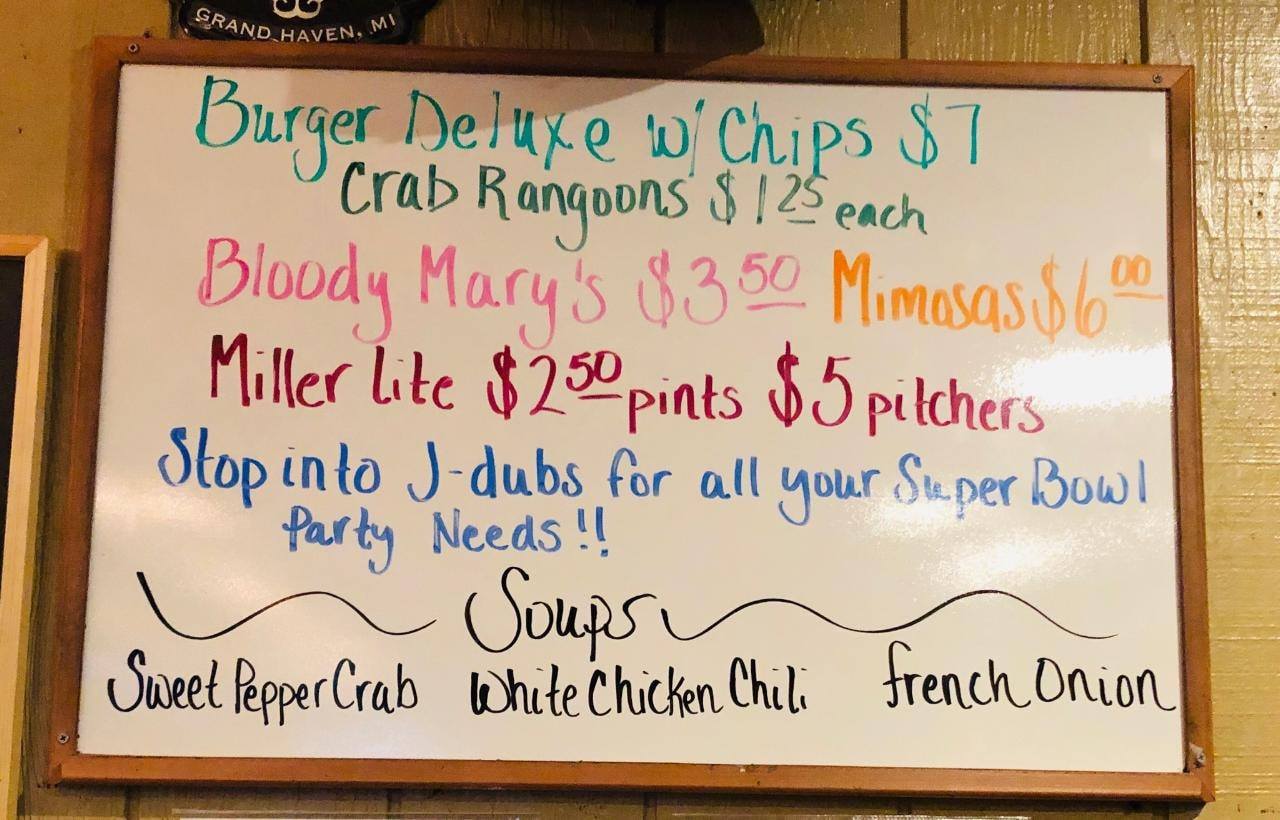 GRAND HAVEN, MI
Burger Deluxe w/ Chips $7
Crab Rangoons $1 25 each
Bloody Mary's $3 50 Mimosas $6 00
Miller Lite $2 50 pints $5 pitchers
Stop into J-dubs for all your Super Bowl
Party Needs!!
Soups
Sweet Pepper Crab White Chicken Chili French Onion